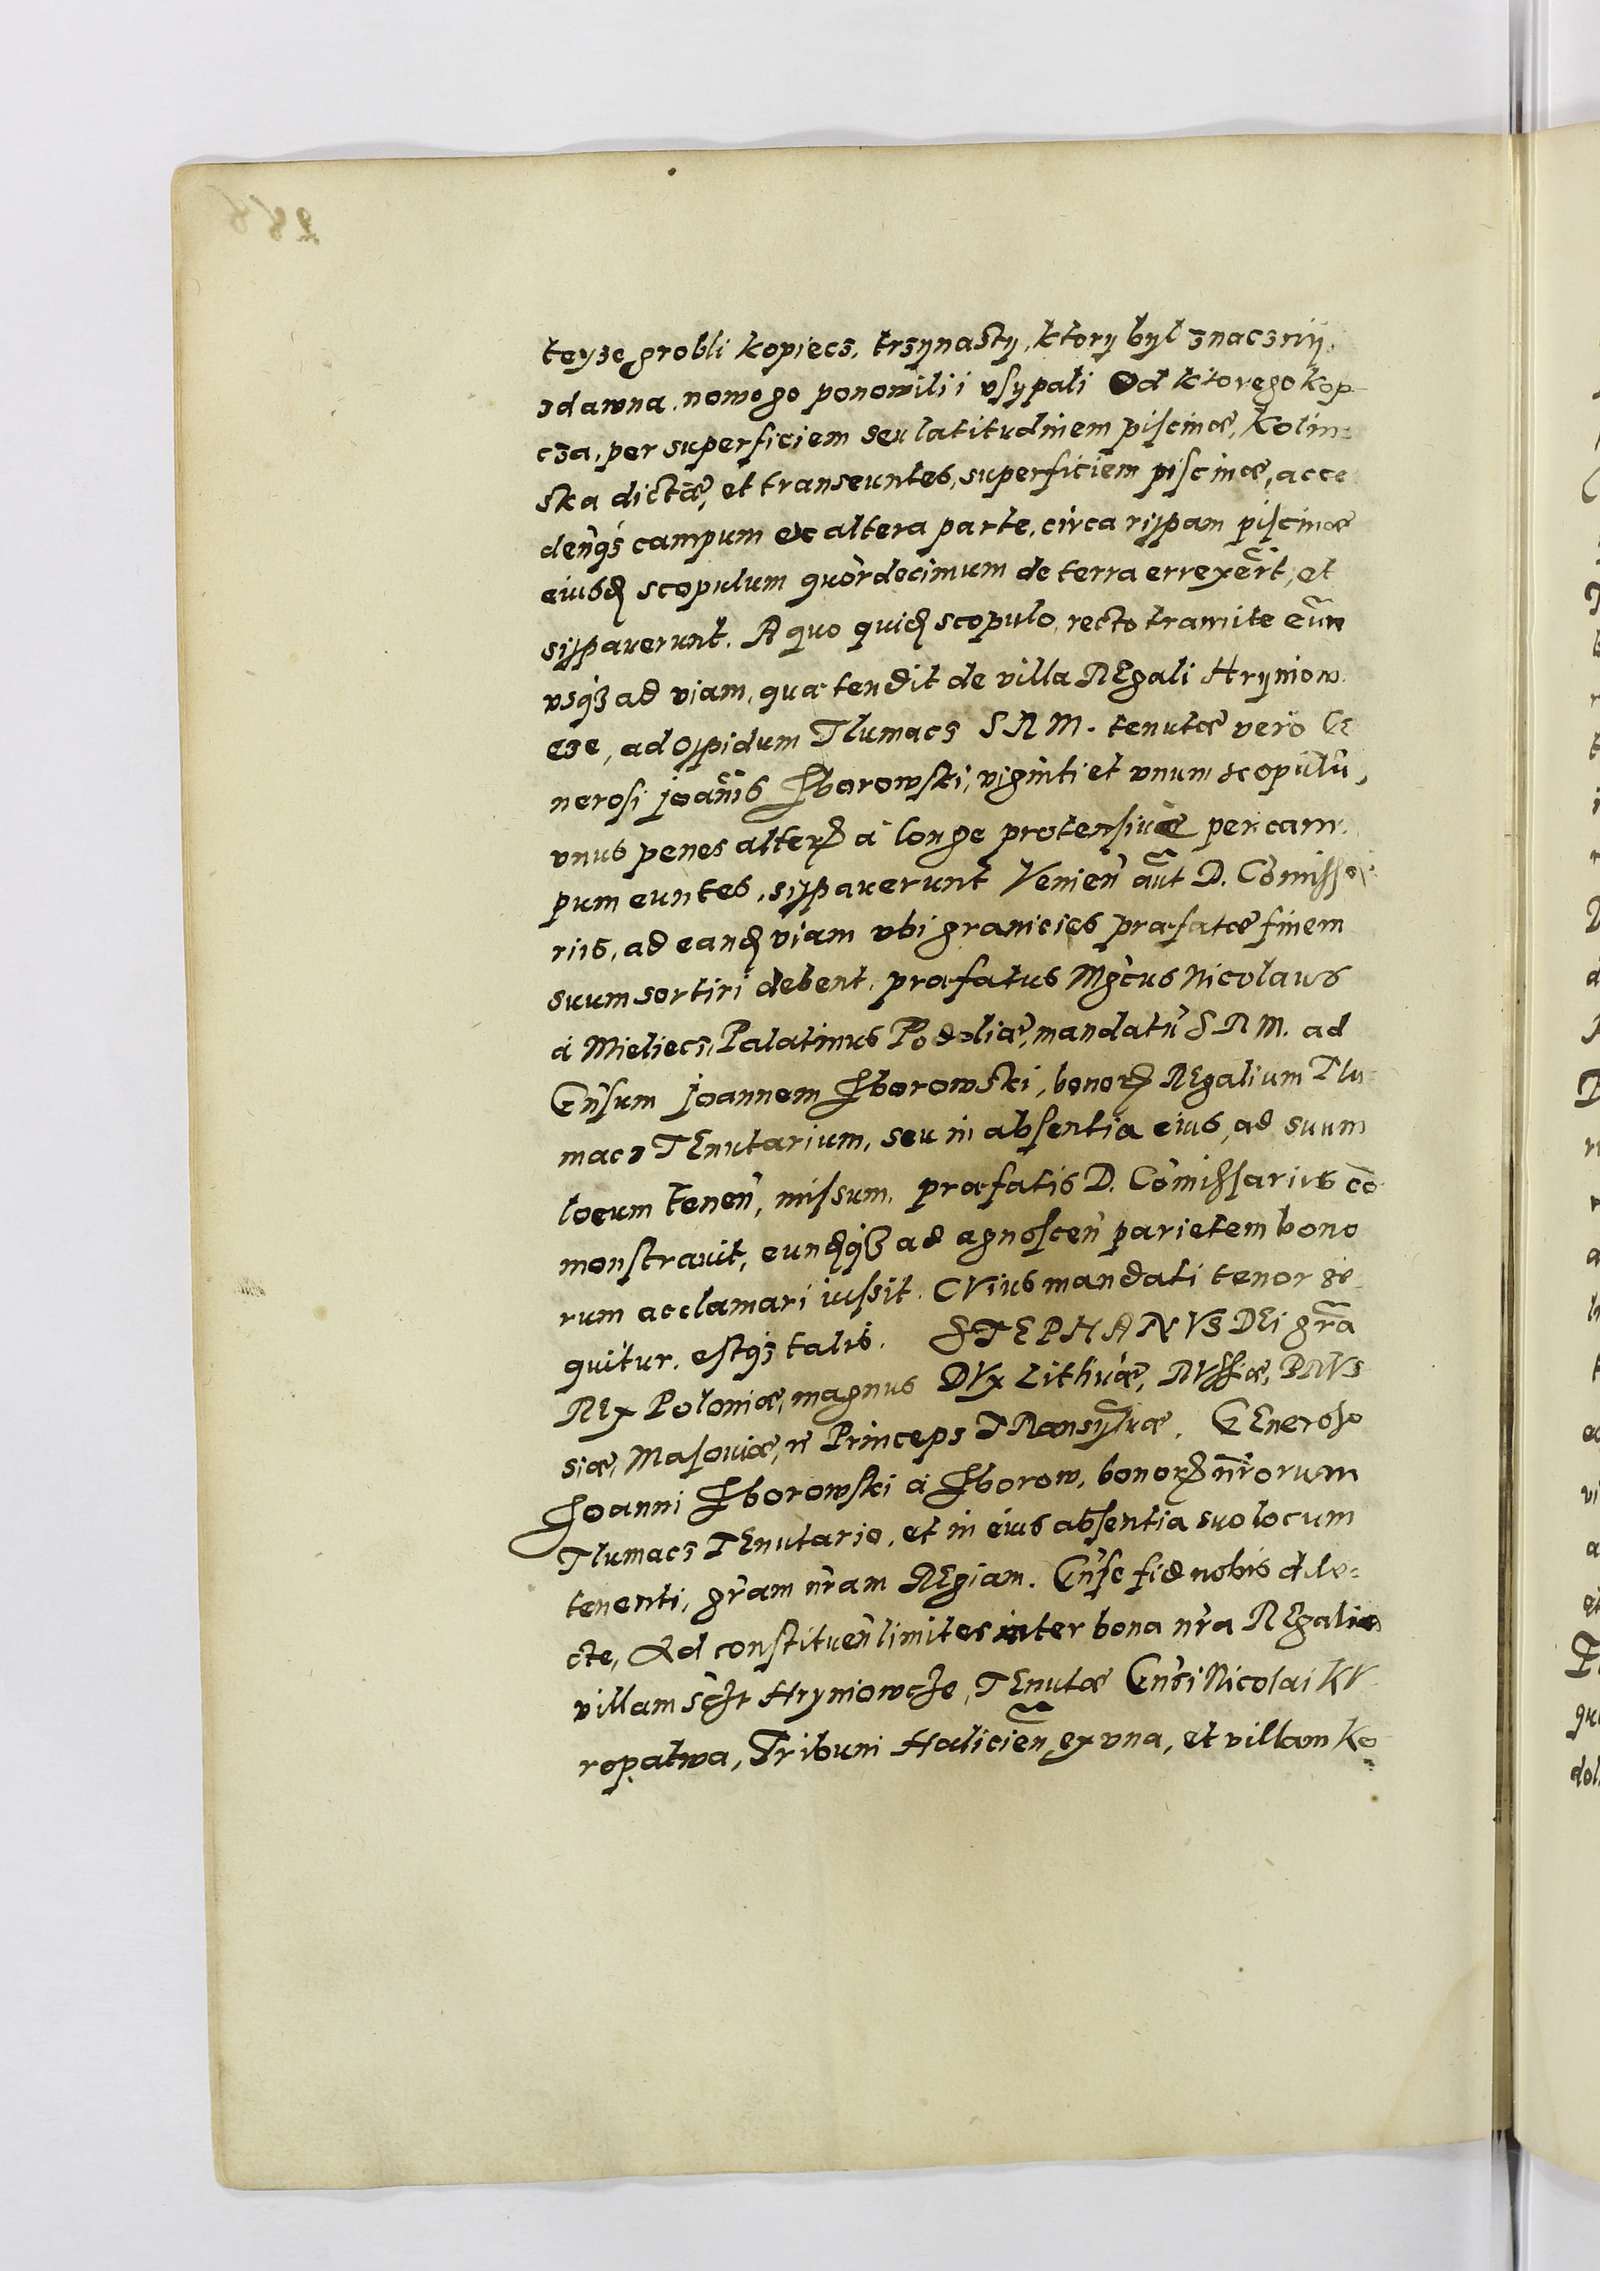 teyze grobli kopiecz, trzynasty, ktory byl znaczny,
zdawna, nowogo ponowili i vsypali Od ktorego kop-
cza, per superficiem seu latitudinem piscinæ, Kolin-
ska dictæ, et transeuntes, superficiem piscinæ, acce
den̄qȝ campum ex altera parte, circa rippam piscinæ
eiusdꝫ scopulum quordecimum de terra errexert̃, et
sipauerunt. A quo quidꝫ scopulo, recto tramite eun̄
vsqȝ ad viam, quæ tendit de villa REgali Hryniow
cze, ad oppidum Tlumacz S R M. tenutæ vero Ge
nerosi Joan̄is Sborowski, viginti et vnum scopulū,
vnus penes alterꝝ à longe protensiuæ per cam-
pum euntes, sipauerunt Venien̄ aūt D. Com̄issa
riis, ad eandꝫ viam vbi granicies præfatæ finem
suum sortiri debent, præfatus Mgcus Nicolaus
à Mieliecz, Palatinus Podoliæ, mandatū S R M. ad
Gn̄sum Joannem Sborowski, bonorꝝ REgalium Tlu-
macz TEnutarium, seu in absentia eius, ad suum
locum tenen̄, missum, præfatis D. Com̄issariis cō-
monstrauit, eundꝫqȝ ad agnoscen̄ parietem bono
rum acclamari iussit. CVius mandati tenor se-
quitur, estqȝ talis. STEPHANVS DEi gr̄a
REx Poloniæ, magnus DVx Lithuæ, RVssiæ, PRVs
siæ, Masouiæ, ꝛc Princeps TRansyluæ. GEneroso
Joanni Sborowski à Sborow, bonorꝝ nr̄orum
Tlumacz TEnutario, et in eius absentia suo locum
tenenti, gr̄am nr̄am REgiam. Gn̄se fid nobis dile-
cte, Ad constituen̄ limites inter bona nr̄a REgalia
villam sczt Hryniowcze, TEnutæ Gn̄si Nicolai KV
ropatwa, Tribuni Halicien̄, ex vna, et villam Ko-